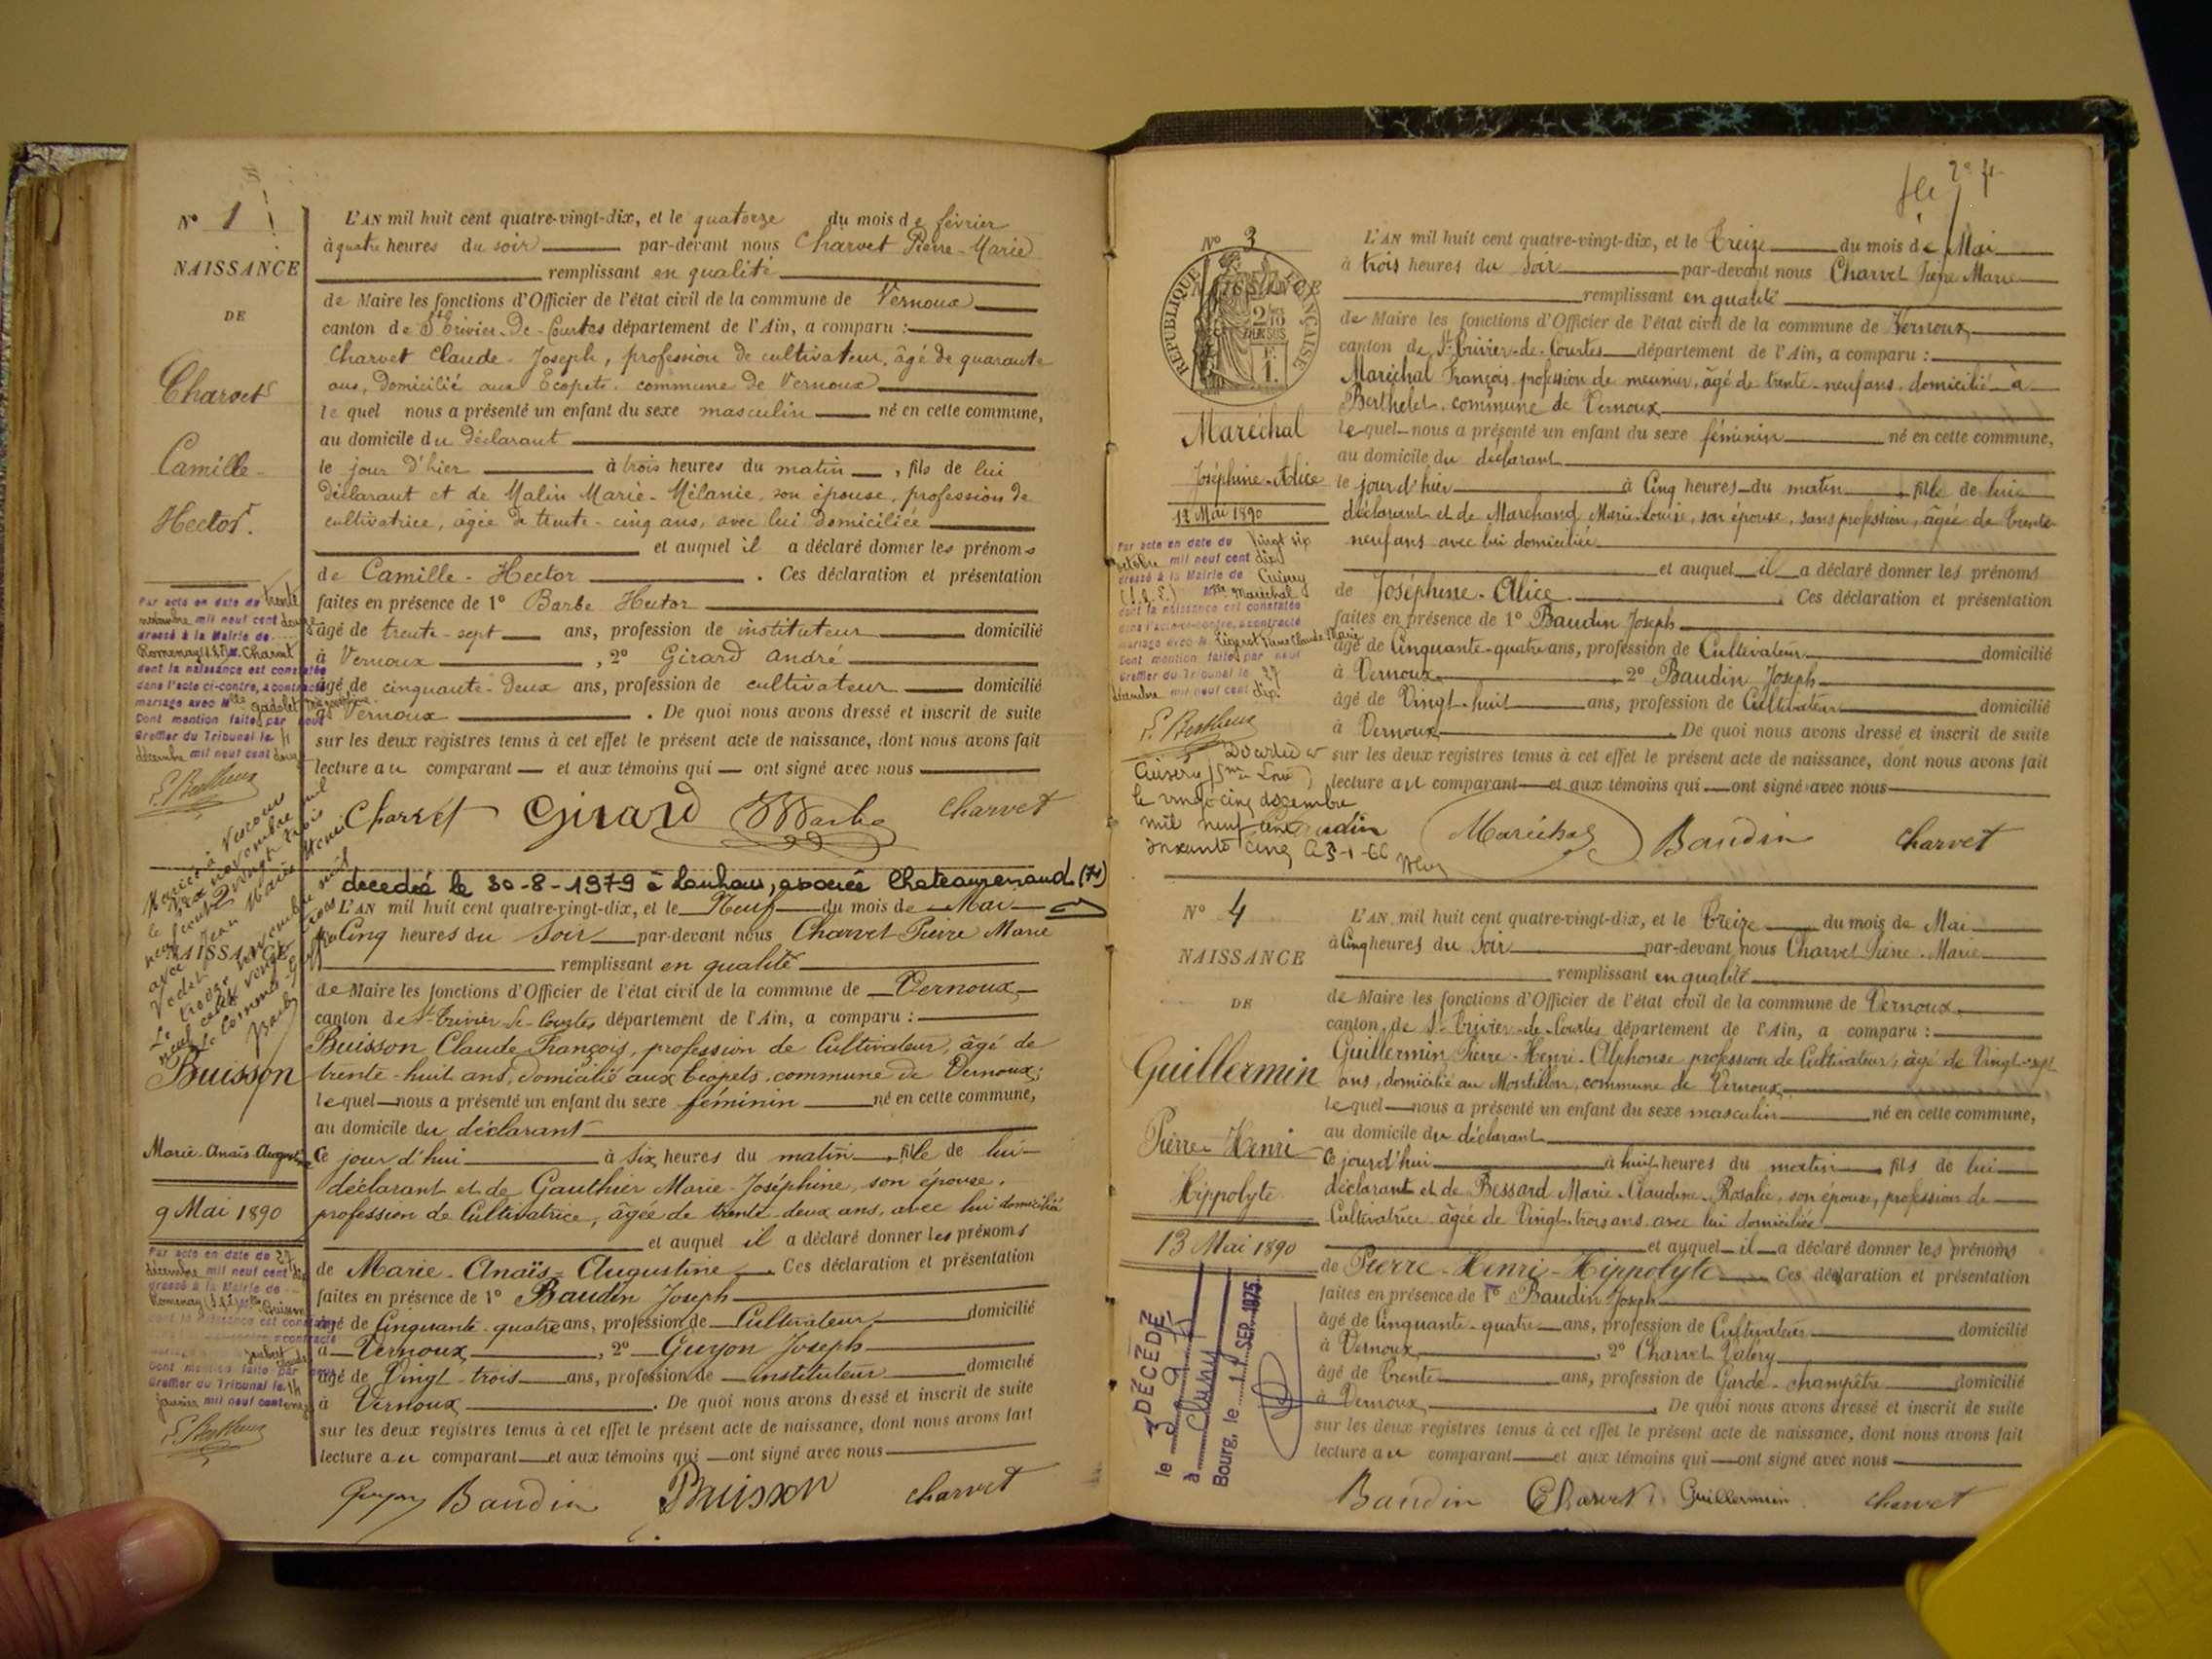 N° 1
NAISSANCE
DE
Charvet
Camille-
Hector.
L'AN mil huit cent quatre-vingt-dix, et le quatorze du mois de février
à quatre heures du soir par-devant nous Charvet Pierre-Marie
remplissant en qualité
de Maire les fonctions d'Officier de l'état civil de la commune de Vernoux
canton de St Trivier-De-Courtes département de l'Ain, a comparu :
Charvet Claude-Joseph, profession de cultivateur, âgé de quarante
ans, Domicilié aux Ecopets, commune de Vernoux
lequel nous a présenté un enfant du sexe masculin né en cette commune,
au domicile du déclarant
le jour d'hier à trois heures du matin, fils de lui
déclarant et de Malin Marie-Mélanie, son épouse, profession de
cultivatrice, âgée de trente-cinq ans, avec lui domiciliée
et auquel il a déclaré donner les prénoms
de Camille-Hector. Ces déclaration et présentation
faites en présence de 1° Barbe Hector
âgé de trente-sept ans, profession de instituteur domicilié
à Vernoux, 2° Girard André
âgé de cinquante-deux ans, profession de cultivateur domicilié
à Vernoux. De quoi nous avons dressé et inscrit de suite
sur les deux registres tenus à cet effet le présent acte de naissance, dont nous avons fait
lecture au comparant et aux témoins qui ont signé avec nous
Charvet Girard Barbe Charvet
Par acte en date du trente
novembre mil neuf cent douze
dressé à la Mairie de
Romenay (S.&L.) M. Charvet
dont la naissance est constatée
dans l'acte ci-contre, a contracté
mariage avec Mlle
Dont mention faite par nous
Greffier du Tribunal le 11
décembre mil neuf cent douze
NAISSANCE
Buisson
Marie-Anaïs-Augustine
9 Mai 1890
décédée le 30-8-1979 à Louhans, associée Chateaurenaud (71)
L'AN mil huit cent quatre-vingt-dix, et le Neuf du mois de Mai
à Cinq heures du Soir par-devant nous Charvet Pierre Marie
remplissant en qualité
de Maire les fonctions d'Officier de l'état civil de la commune de Vernoux
canton de St-Trivier-de-Courtes département de l'Ain, a comparu :
Buisson Claude François, profession de Cultivateur, âgé de
trente-huit ans, domicilié aux Ecopets, commune de Vernoux;
lequel nous a présenté un enfant du sexe féminin né en cette commune,
au domicile du déclarant
Ce jour d'hui à six heures du matin, fille de lui
déclarant et de Gauthier Marie-Joséphine, son épouse,
profession de Cultivatrice, âgée de trente-deux ans, avec lui domiciliée
et auquel il a déclaré donner les prénoms
de Marie-Anaïs-Augustine. Ces déclaration et présentation
faites en présence de 1° Baudin Joseph
âgé de Cinquante-quatre ans, profession de Cultivateur domicilié
à Vernoux, 2° Guyon Joseph
âgé de Vingt-trois ans, profession de instituteur domicilié
à Vernoux. De quoi nous avons dressé et inscrit de suite
sur les deux registres tenus à cet effet le présent acte de naissance, dont nous avons fait
lecture au comparant et aux témoins qui ont signé avec nous
Guyon Baudin Buisson Charvet
Par acte en date du 27
décembre mil neuf cent dix
dressé à la Mairie de
Romenay (S.&L.) Mlle Buisson
dont la naissance est constatée
Dont mention faite par nous
Greffier du Tribunal le 14
janvier mil neuf cent onze
N° 3
NAISSANCE
REPUBLIQUE FRANÇAISE
2/10 EN SUS
1 F.
Maréchal
Joséphine-Alice
12 Mai 1890
L'AN mil huit cent quatre-vingt-dix, et le Treize du mois de Mai
à trois heures du soir par-devant nous Charvet Pierre Marie
remplissant en qualité
de Maire les fonctions d'Officier de l'état civil de la commune de Vernoux
canton de St-Trivier-de-Courtes département de l'Ain, a comparu :
Maréchal François, profession de meunier, âgé de trente-neuf ans, domicilié à
Berthelet, commune de Vernoux
lequel nous a présenté un enfant du sexe féminin né en cette commune,
au domicile du déclarant
le jour d'hier à Cinq heures du matin, fille de lui
déclarant et de Marchand Marie-Louise, son épouse, sans profession, âgée de trente-
neuf ans avec lui domiciliée
et auquel il a déclaré donner les prénoms
de Joséphine-Alice. Ces déclaration et présentation
faites en présence de 1° Baudin Joseph
âgé de Cinquante-quatre ans, profession de Cultivateur domicilié
à Vernoux, 2° Baudin Joseph
âgé de Vingt-huit ans, profession de Cultivateur domicilié
à Vernoux. De quoi nous avons dressé et inscrit de suite
sur les deux registres tenus à cet effet le présent acte de naissance, dont nous avons fait
lecture au comparant et aux témoins qui ont signé avec nous
Baudin Maréchal Baudin Charvet
Par acte en date du Vingt six
octobre mil neuf cent dix
dressé à la Mairie de
Mlle Maréchal
dont la naissance est constatée
dans l'acte ci-contre, a contracté
mariage avec M. Claude Marie
Dont mention faite par nous
Greffier du Tribunal le 27
décembre mil neuf cent dix
Décédée à
le vingt cinq décembre
mil neuf cent
soixante cinq 3-1-66
N° 4
NAISSANCE
DE
Guillermin
Pierre-Henri
Hippolyte
13 Mai 1890
L'AN mil huit cent quatre-vingt-dix, et le Treize du mois de Mai
à Cinq heures du soir par-devant nous Charvet Pierre-Marie
remplissant en qualité
de Maire les fonctions d'Officier de l'état civil de la commune de Vernoux
canton de St-Trivier-de-Courtes département de l'Ain, a comparu :
Guillermin Pierre-Henri-Alphonse profession de Cultivateur, âgé de Vingt-sept
ans, domicilié au Montillon, commune de Vernoux
lequel nous a présenté un enfant du sexe masculin né en cette commune,
au domicile du déclarant
Ce jourd'hui à huit heures du matin, fils de lui
déclarant et de Bessard Marie-Claudine-Rosalie, son épouse, profession de
Cultivatrice âgée de Vingt-trois ans avec lui domiciliée
et auquel il a déclaré donner les prénoms
de Pierre-Henri-Hippolyte. Ces déclaration et présentation
faites en présence de 1° Baudin Joseph
âgé de Cinquante-quatre ans, profession de Cultivateur domicilié
à Vernoux, 2° Charvet Valery
âgé de trente ans, profession de Garde-champêtre domicilié
à Vernoux. De quoi nous avons dressé et inscrit de suite
sur les deux registres tenus à cet effet le présent acte de naissance, dont nous avons fait
lecture au comparant et aux témoins qui ont signé avec nous
Baudin Charvet Guillermin Charvet
DÉCÉDÉ
le
à Cluny
Bourg, le SEP. 1975